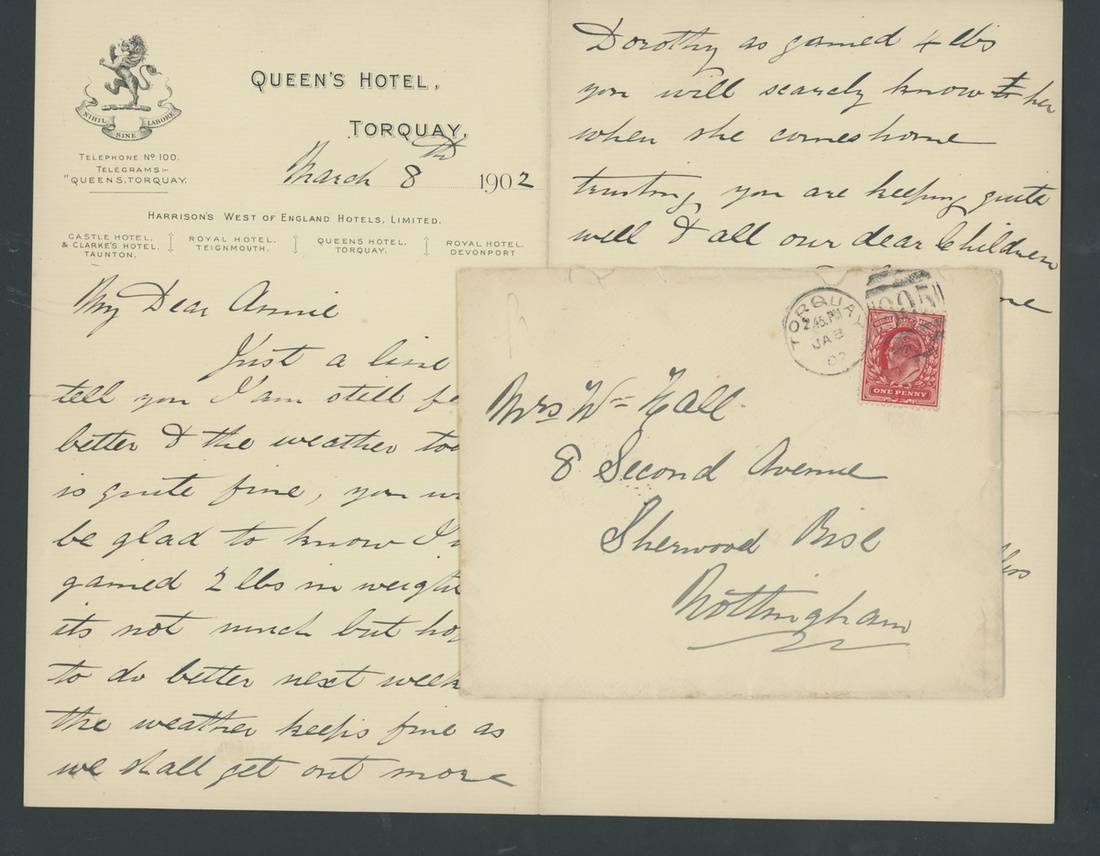 NIHIL SINE LABORE
TELEPHONE Nº 100.
TELEGRAMS:-
"QUEENS, TORQUAY.
QUEEN'S HOTEL,
TORQUAY,
March 8th 1902
HARRISON'S WEST OF ENGLAND HOTELS, LIMITED.
CASTLE HOTEL,
& CLARKE'S HOTEL,
TAUNTON.
ROYAL HOTEL,
TEIGNMOUTH.
QUEENS HOTEL,
TORQUAY.
ROYAL HOTEL
DEVONPORT
My Dear Annie
Just a line
tell you I am still
better & the weather
is quite fine, you
be glad to know
gained 2 lbs in weight
its not much but
to do better next week
the weather keeps fine as
we shall get out more
Dorothy as gained 4 lbs
you will scarely know her
when she comes home
trusting you are keeping quite
well & all our dear Children
TORQUAY
2.45 PM
02
ONE PENNY
Mrs Wm Hall
8 Second Avenue
Sherwood Rise
Nottingham